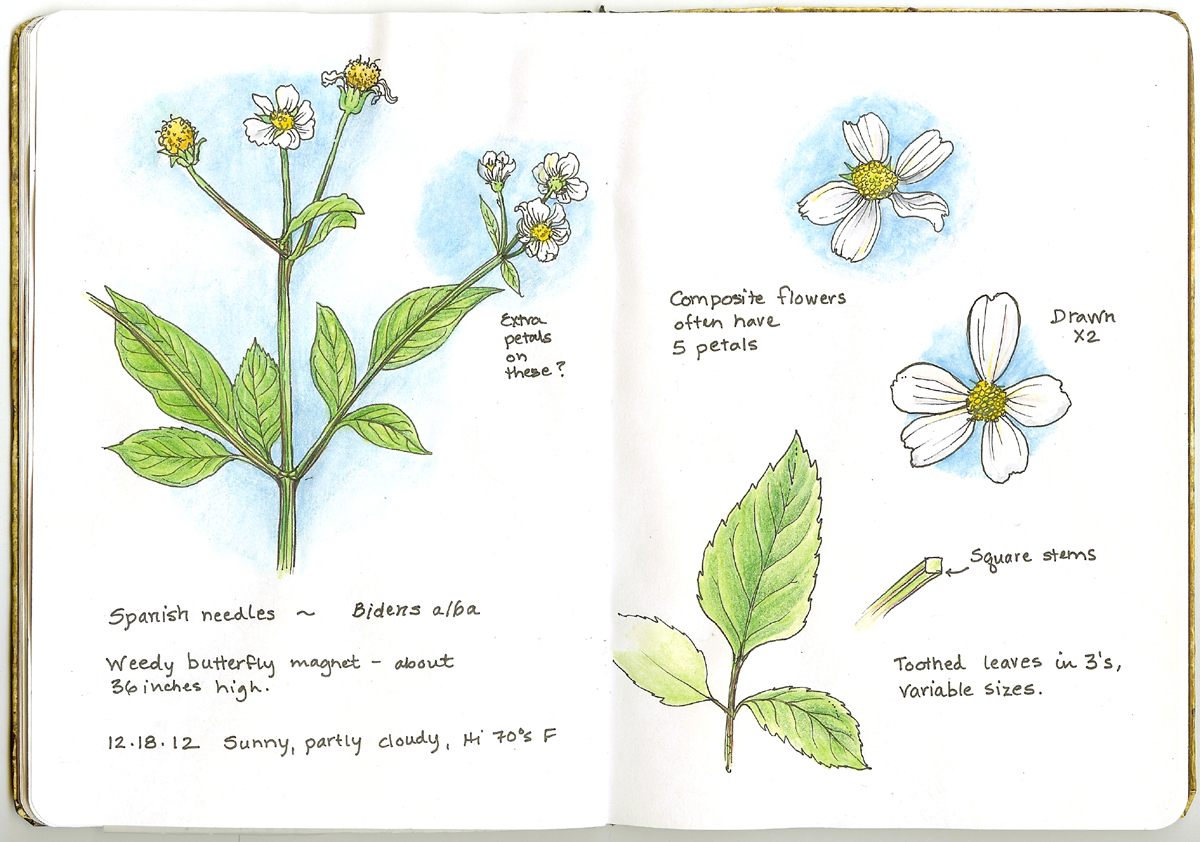 Extra
petals
on
these?
Spanish needles ~ Bidens alba
Weedy butterfly magnet - about
36 inches high.
12.18.12 Sunny, partly cloudy, Hi 70's F
Composite flowers
often have
5 petals
Drawn
X2
Square stems
Toothed leaves in 3's,
variable sizes.